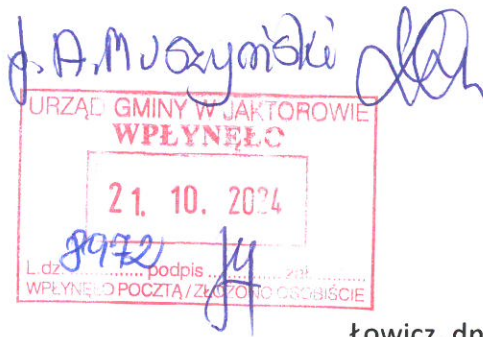 p. A. Muszyński
URZĄD GMINY W JAKTOROWIE
WPŁYNĘŁO
21. 10. 2024
L.dz. 8972 podpis zał.
WPŁYNĘŁO POCZTĄ / ZŁOŻONO OSOBIŚCIE
Łowicz dn